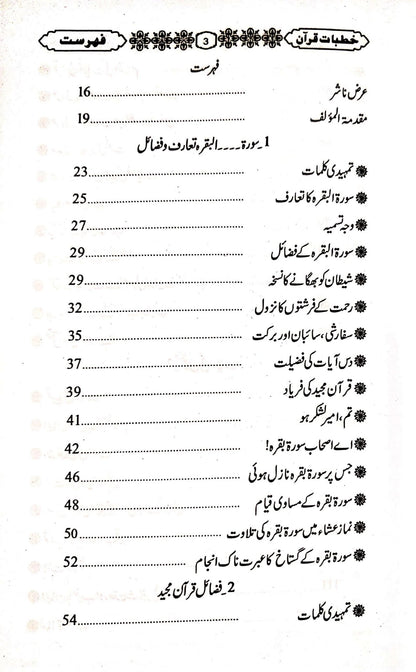 خطبات قرآن 3 فہرست
فہرست
عرض ناشر 16
مقدمۃ المؤلف 19
1۔ سورۃ ۔۔۔۔ البقرہ تعارف و فضائل
تمہیدی کلمات 23
سورۃ البقرہ کا تعارف 25
وجہ تسمیہ 27
سورۃ البقرہ کے فضائل 29
شیطان کو بھگانے کا نسخہ 29
رحمت کے فرشتوں کا نزول 32
سفارشی، سائبان اور برکت 35
دس آیات کی فضیلت 37
قرآن مجید کی فریاد 39
تم، امیر لشکر ہو 41
اے اصحاب سورۃ بقرہ! 42
جس پر سورۃ بقرہ نازل ہوئی 46
سورۃ بقرہ کے مساوی قیام 48
نماز عشاء میں سورۃ بقرہ کی تلاوت 50
سورۃ بقرہ کے گستاخ کا عبرت ناک انجام 52
2۔ فضائل قرآن مجید
تمہیدی کلمات 54